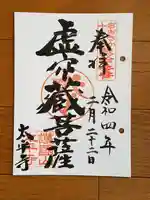 奉拝
令和四年
二月二十二日
虚空蔵菩薩
太平寺